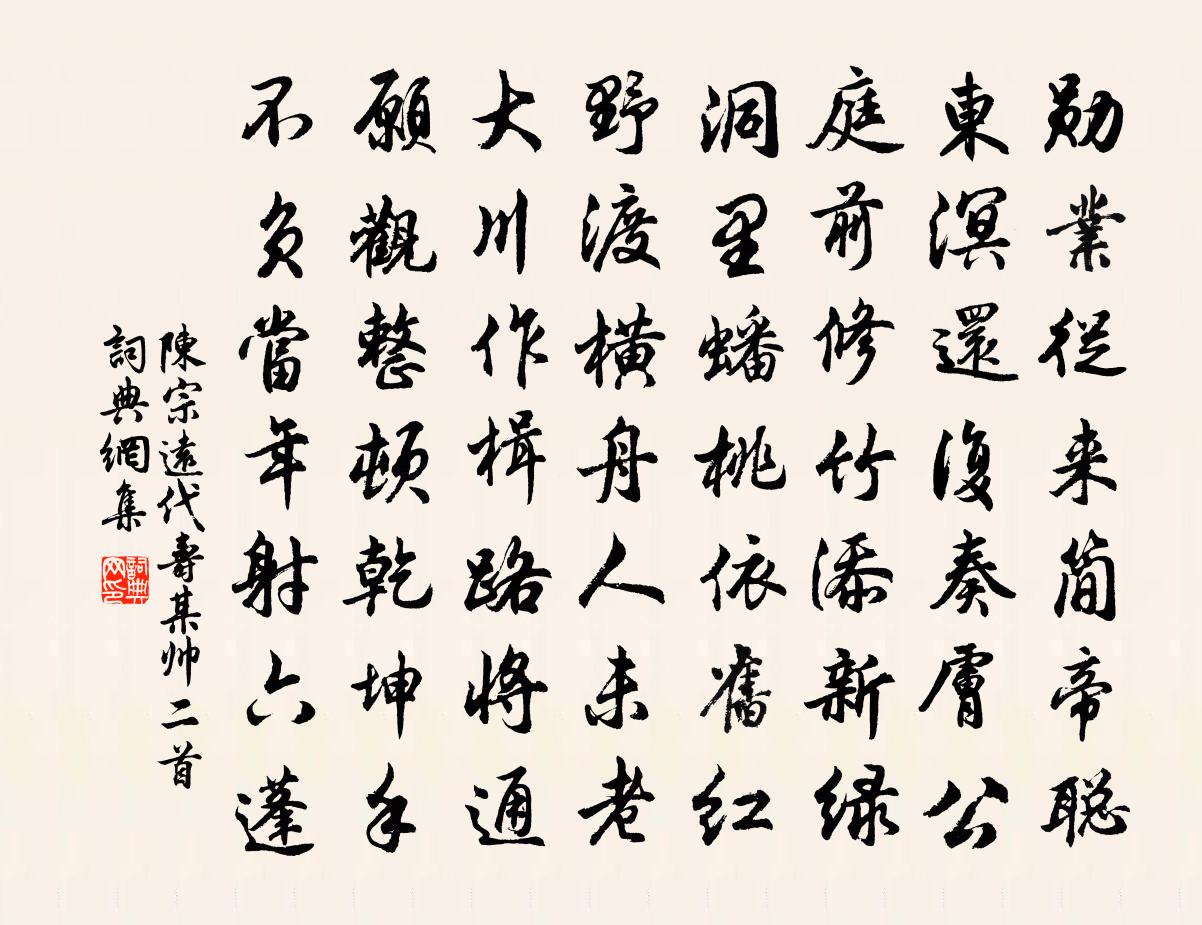 勛業従来简帝聪
東溟還復奏膚公
庭前修竹添新绿
洞里蟠桃依舊红
野渡橫舟人未老
大川作楫路将通
願觀整頓乾坤手
不負當年射六蓬
陳宗遠代壽某帅二首
詞典網集
詞典网印